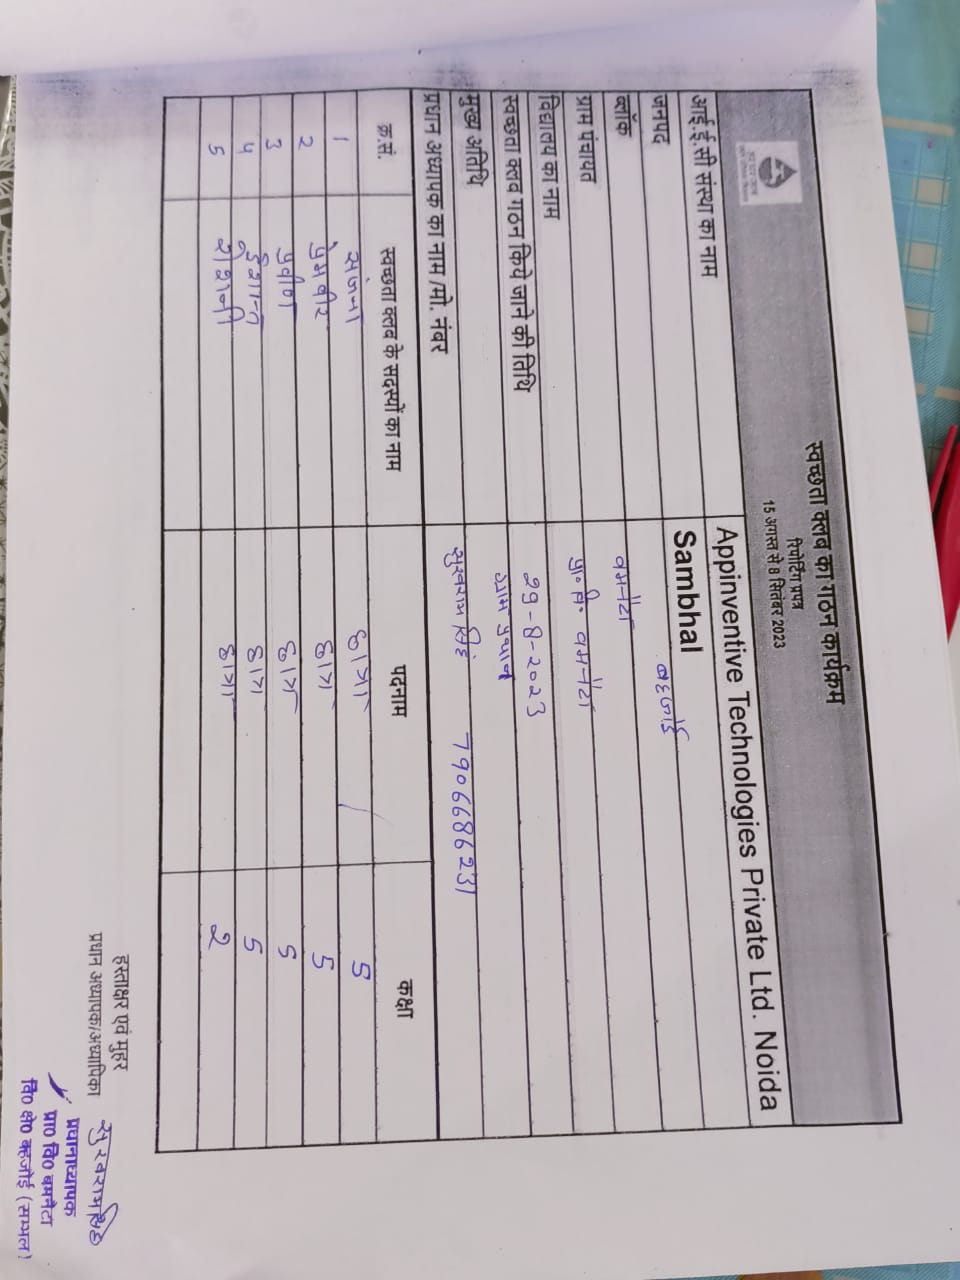 स्वच्छता क्लब का गठन कार्यक्रम
रिपोर्टिंग प्रपत्र
15 अगस्त से 8 सितंबर 2023
आई.ई.सी संस्था का नाम Appinventive Technologies Private Ltd. Noida
जनपद Sambhal
ब्लॉक बहजोई
ग्राम पंचायत बमनेटा
विद्यालय का नाम प्रा० वि० बमनेटा
स्वच्छता क्लब गठन किये जाने की तिथि 29-8-2023
मुख्य अतिथि ग्राम प्रधान
प्रधान अध्यापक का नाम /मो. नंबर सुखराम सिंह 7906686231
क.सं. स्वच्छता क्लब के सदस्यों का नाम पदनाम कक्षा
1 संजना छात्रा 5
2 प्रेमवीर छात्र 5
3 प्रवीण छात्र 5
4 छात्र 5
5 रोशनी छात्रा 2
हस्ताक्षर एवं मुहर
प्रधान अध्यापक/अध्यापिका
सुखराम सिंह
प्रधानाध्यापक
प्रा० वि० बमनैटा
वि० क्षे० बहजोई (सम्भल)